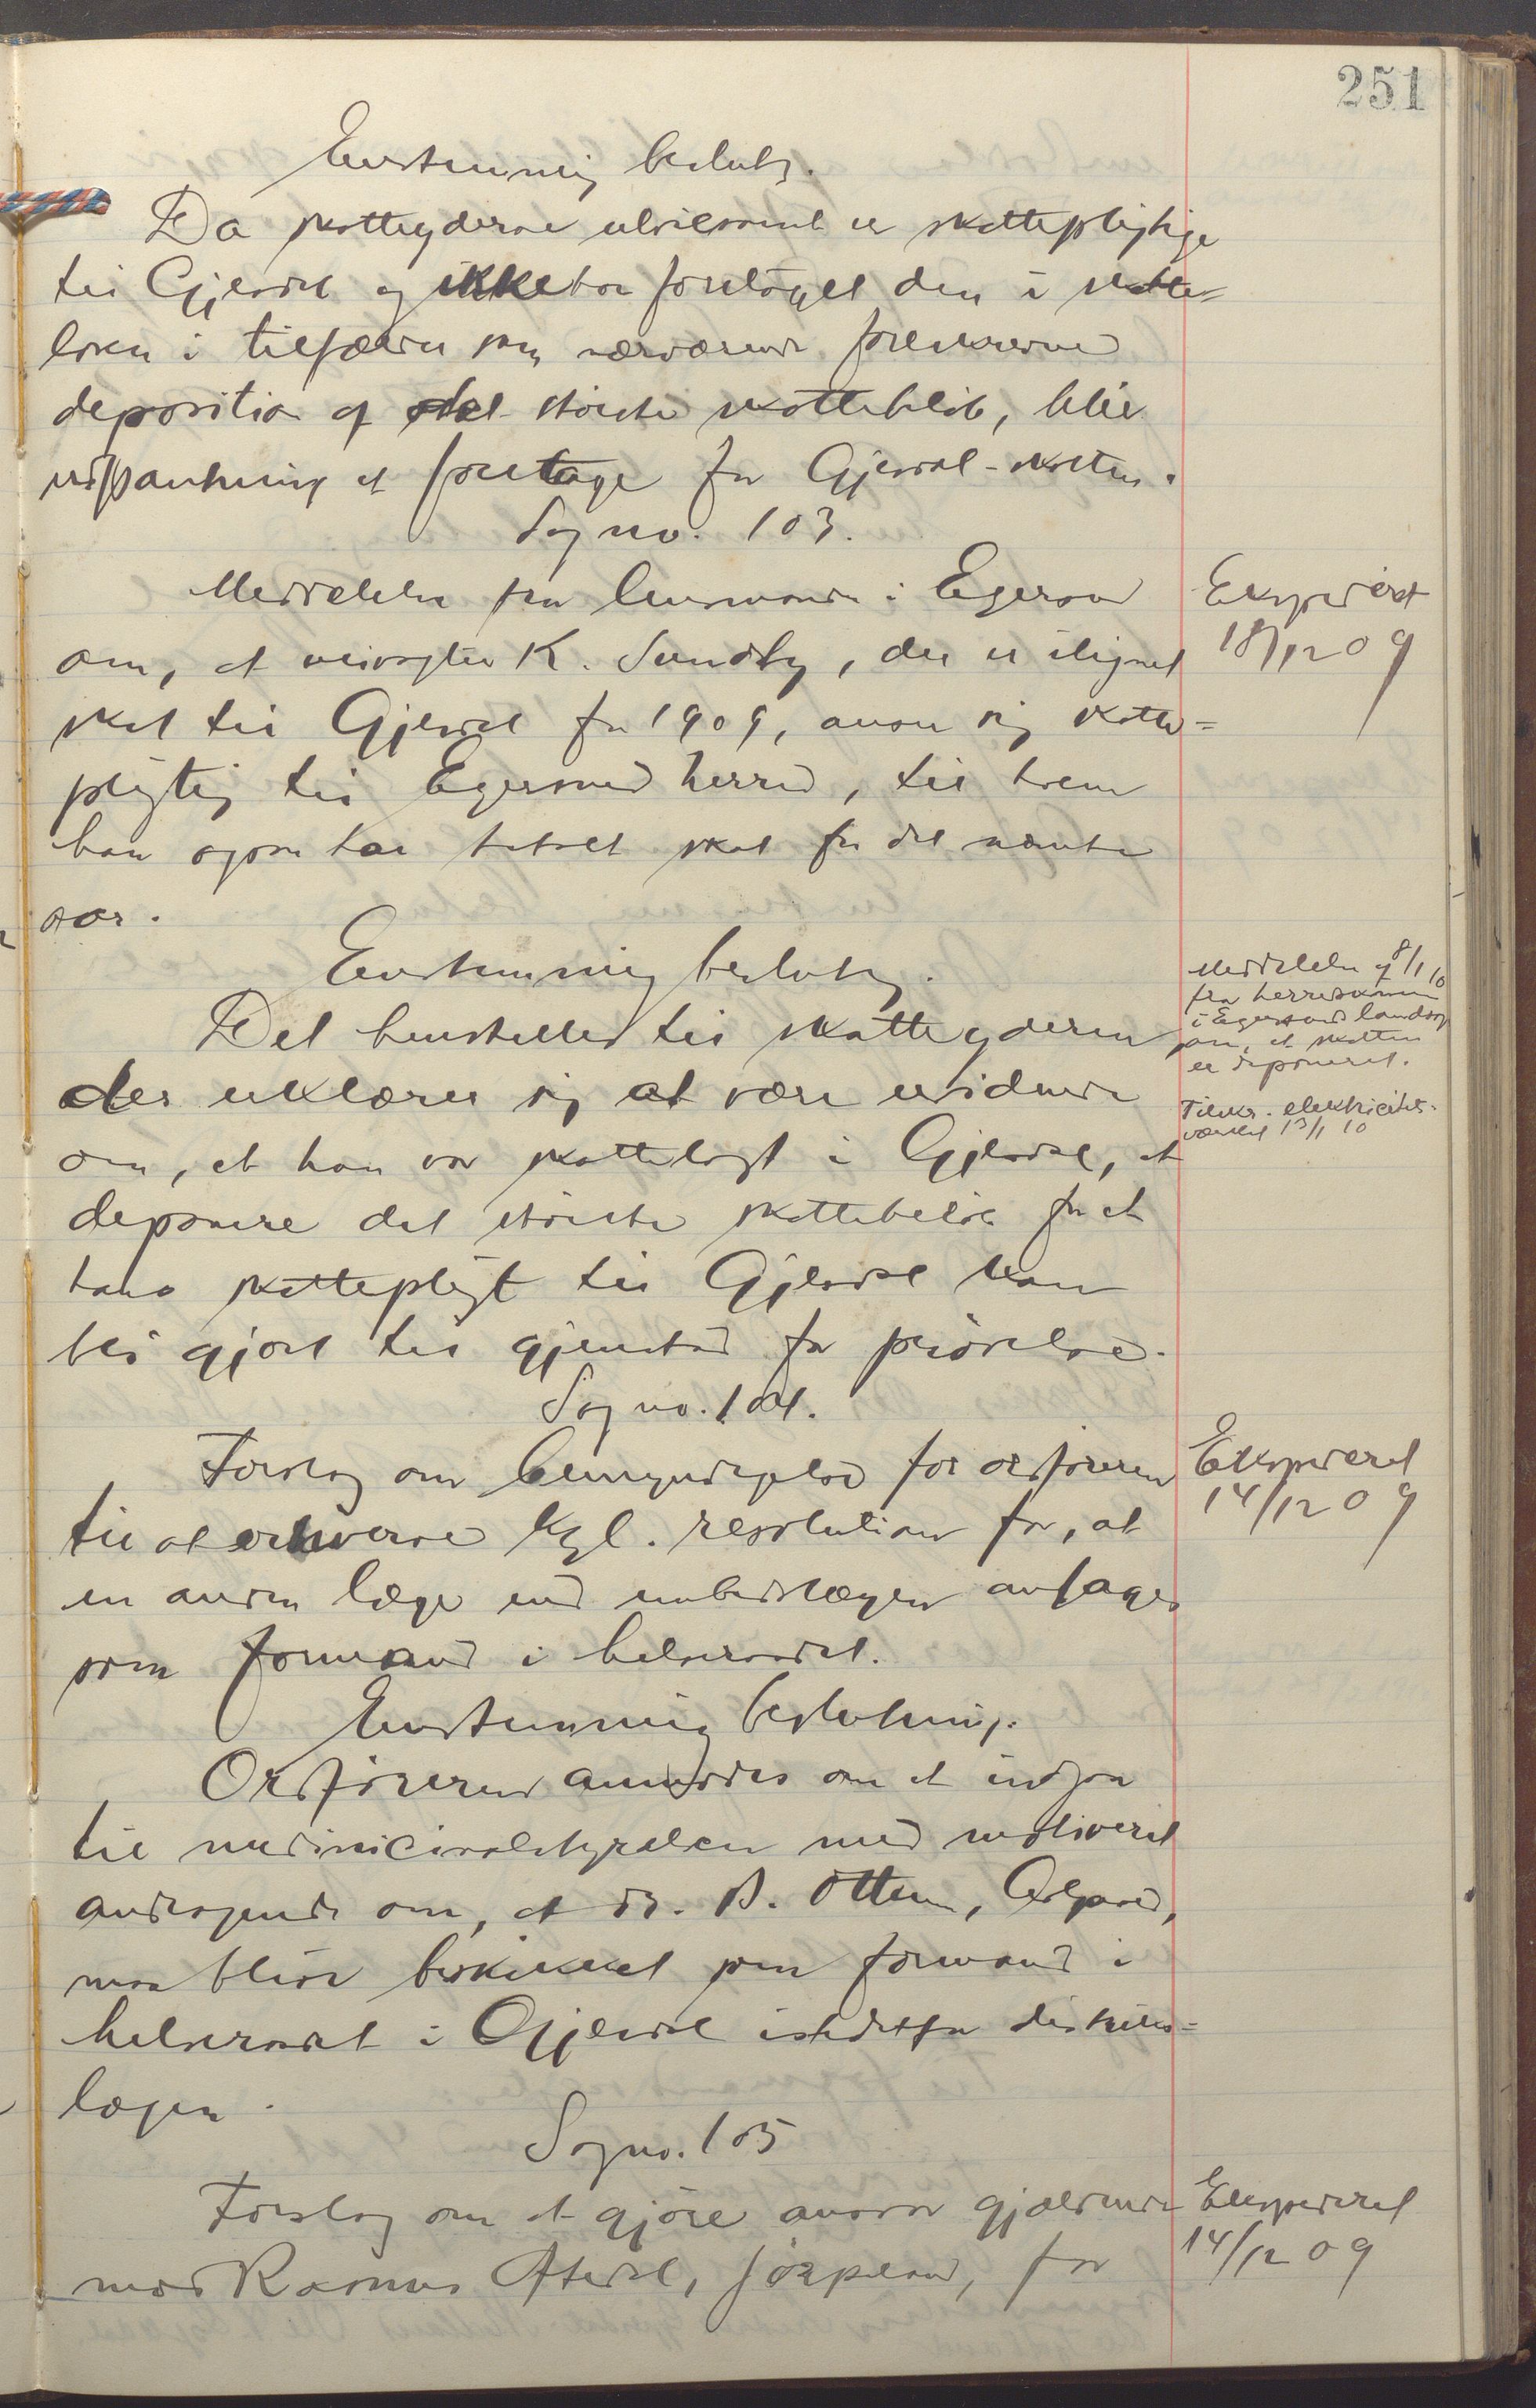 251
Enstemmig beslutn.
Da skatteyderne utvilsomt er skattepligtige
til Gjesdal og ikke har foretaget den i skatte-
loven i tilfælde som nærværende foreskrevne
deposition af det største skattebeløb, blir
utpantning at foretage for Gjesdal-skatten.
Sag no. 103.
Meddelelse fra lensmanden i Egersund
om, at veivogter K. Sundby, der er ilignet
skat til Gjesdal for 1909, anser sig skatte-
pligtig til Egersund herred, til hvem
han ogsaa har betalt skat for det nævnte
aar.
Enstemmig beslutn.
Det henstilles til skatteyderen,
der erklærer sig at være uvidende
om, at han var skattelagt i Gjesdal, at
deponere det største skattebeløb for at
hans skattepligt til Gjesdal kan
bli gjort til gjenstand for prøvelse.
Sag no. 104.
Forslag om bemyndigelse for ordføreren
til at erhverve kgl. resolution for, at
en anden læge end embedslægen antages
som formand i helseraadet.
Enstemmig beslutning.
Ordføreren anmodes om at indgaa
til medinicinalstyrelsen med motiveret
andragende om, at dr. B. Ottem, Aalgaard,
maa blive beskikket som formand i
helseraadet i Gjesdal istedetfor distrikts-
lægen.
Sag no. 105
Forslag om at gjøre ansvar gjældende
mod Rasmus Østerdal, Jørpeland, for
Ekspedert
18/12 09
Meddelelse af 8/1 10
fra herredskassereren
i Egersund landsogn
om, at skatten
er deponeret.
Tilskr. elektricitets-
værket 13/1 10
Ekspederet
14/12 09
Ekspederet
14/12 09